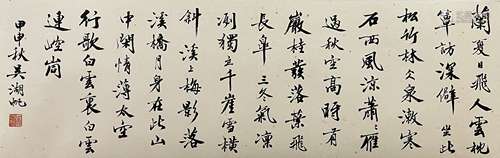 蘭夏日飛人雲枕
簟訪深僻坐此
松竹林久泉漱寒
石西風凉蕭蕭雁
過秋空高時有
巖桂發落葉飛
長皋三冬氣凛
冽獨立千崖雪橫
斜溪上梅影落
溪橋月身在此山
中閑情薄太空
行歌白雲裏白雲
連嶝崗
甲申秋吳湖帆